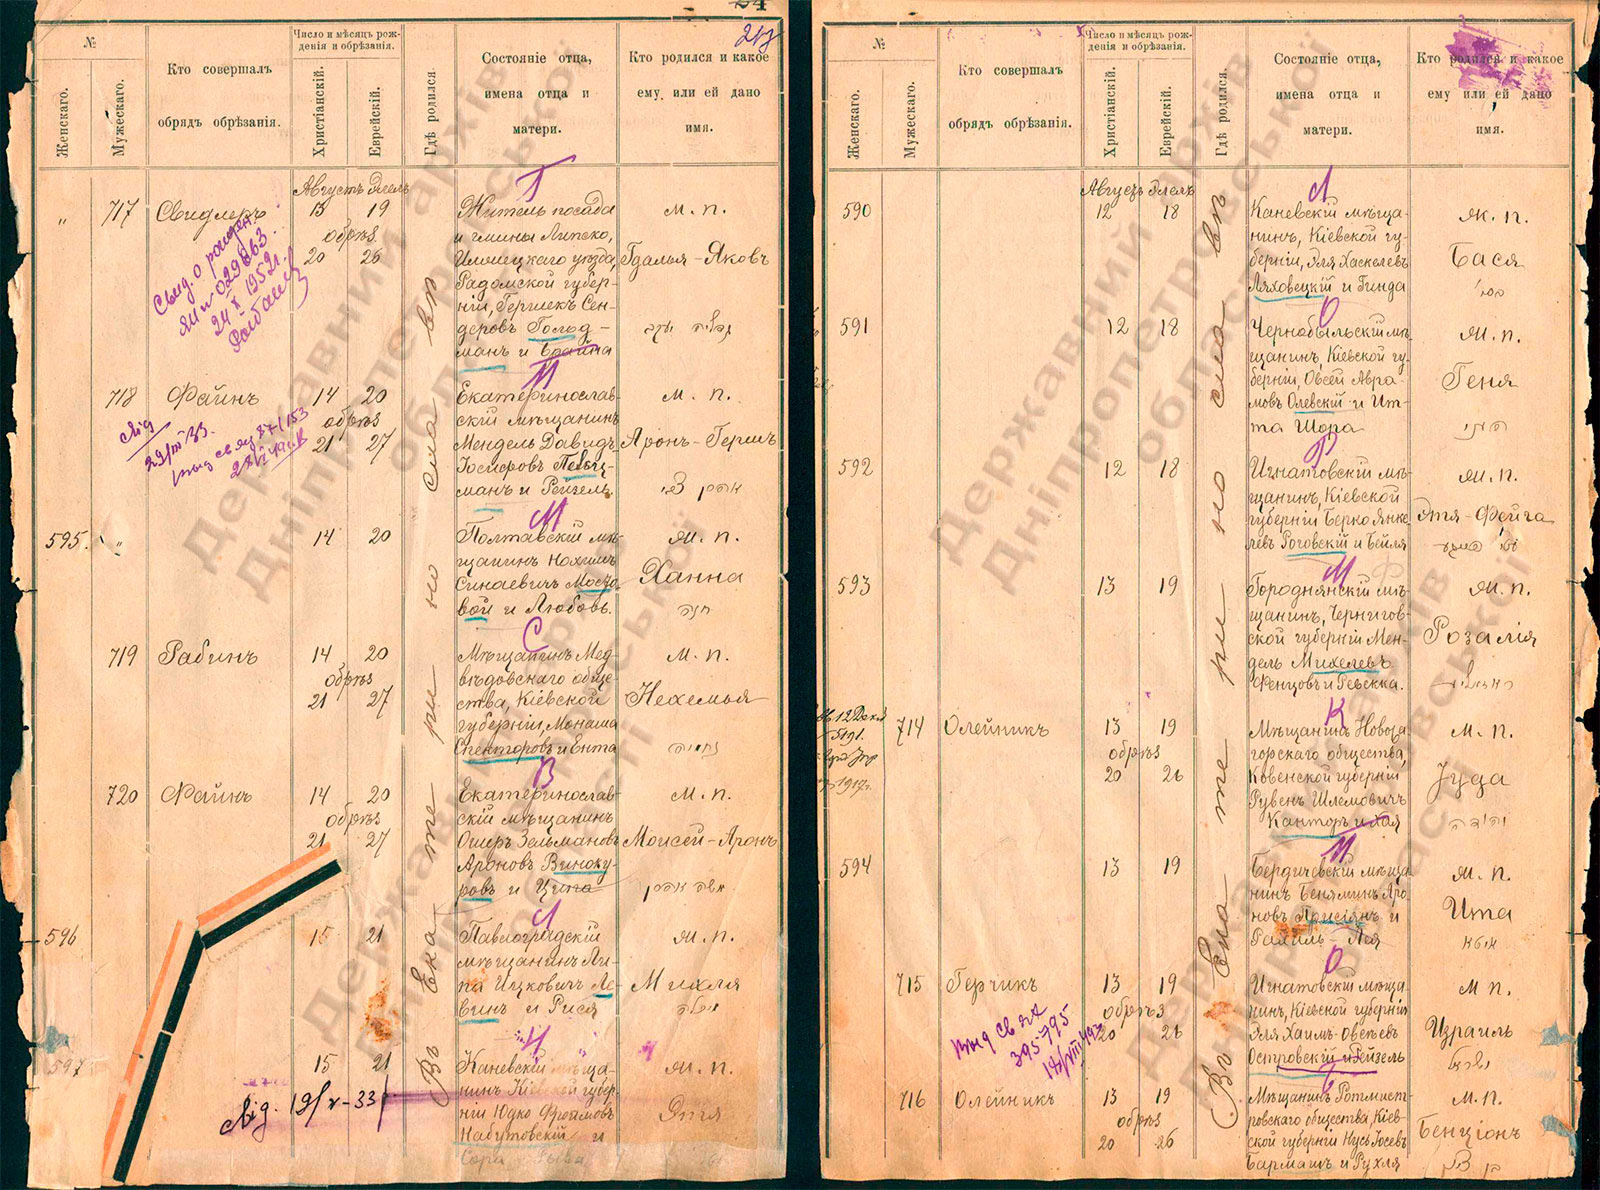 24
217
№
Женскаго.
Мужескаго.
Кто совершалъ
обрядъ обрѣзанія.
Число и мѣсяцъ рож-
денія и обрѣзанія.
Христіанскій.
Еврейскій.
Гдѣ родился.
Состояніе отца,
имена отца и
матери.
Кто родился и какое
ему или ей дано
имя.
Въ Екатеринославѣ
Августъ Элель
" 717 Свидлеръ 13 19
обрѣз
20 26
Г
Житель посада
и гмины Липско,
Илжецкаго уѣзда,
Радомской губер-
ніи, Гершекъ Сен-
деровъ Гольд-
манъ и Брайна
м. п.
Гдалья-Яковъ
Свид. о рожден.
24 X 1952г.
718 Файнъ 14 20
обрѣз
21 27
Екатеринослав-
скій мѣщанинъ
Мендель Давидъ
Іосифовъ
манъ и Рейзель.
м. п.
Аронъ-Гершъ
595. " 14 20
М
Полтавскій мѣ-
щанинъ Нохимъ
Синаевичъ Моско-
вой и Любовь.
ж. п.
Ханна
חנה
719 Рабинъ 14 20
обрѣз
21 27
С
Мѣщанинъ Мед-
вѣдовскаго обще-
ства, Кіевской
губерніи, Монаша
Спекторовъ и Ента
м. п.
Нехемья
נחמיה
720 Файнъ 14 20
обрѣз
21 27
В
Екатеринослав-
скій мѣщанинъ
Ошеръ Зельмановъ
Ароновъ Виноку-
ровъ и Ципа
м. п.
Моисей-Аронъ
משה אהרן
596 15 21
Л
Павлоградскій
мѣщанинъ Ли-
па Ицковичъ Ле-
винъ и Рися
ж. п.
Михля
מיכלה
597 15 21
Н
Каневскій мѣща-
нинъ Кіевской губер-
ніи Юдко Фроимовъ
Набутовскій и
Сора
ж. п.
№
Женскаго.
Мужескаго.
Кто совершалъ
обрядъ обрѣзанія.
Число и мѣсяцъ рож-
денія и обрѣзанія.
Христіанскій.
Еврейскій.
Гдѣ родился.
Состояніе отца,
имена отца и
матери.
Кто родился и какое
ему или ей дано
имя.
Въ Екатеринославѣ
Августъ Элель
590 12 18
Л
Каневскій мѣща-
нинъ, Кіевской гу-
берніи, Эля Хаскелевъ
Ляховецкій и Гинда
ж. п.
Бася
591 12 18
О
Чернобыльскій мѣ-
щанинъ, Кіевской гу-
берніи, Овсей Авра-
мовъ Олевскій и Ит-
та Шора
ж. п.
Геня
592 12 18
Р
Игнатовскій мѣ-
щанинъ, Кіевской
губерніи Берко Янке-
левъ Роговскій и Бейля
ж. п.
Этя-Фейга
593 13 19
М
Городнянскій мѣ-
щанинъ, Чернигов-
ской губерніи Мен-
дель Михелевъ
Фенцовъ и Ревекка.
ж. п.
Розалія
714 Олейникъ 13 19
обрѣз
20 26
К
Мѣщанинъ Ново-
горскаго общества,
Ковенской губерніи
Рувенъ Шлемовичъ
Канторъ и Хая
м. п.
Іуда
יהודה
594 13 19
Бердичевскій мѣща-
нинъ Беняминъ Аро-
новъ и
Рахиль-Лея
ж. п.
Ита
איטא
715 Герчикъ 13 19
обрѣз
20 26
О
Игнатовскій мѣща-
нинъ, Кіевской губерніи
Эля Хаимъ-Овсеевъ
Островскій и Рейзель
м п.
Израиль
ישראל
395795
716 Олейникъ 13 19
обрѣз
20 26
Мѣщанинъ Ротмист-
ровскаго общества Кіев-
ской губерніи Нусъ Іосевъ
Бармашъ и Рухля
м. п.
Бенціонъ
בן ציון
Державний архів
Дніпропетровської
області